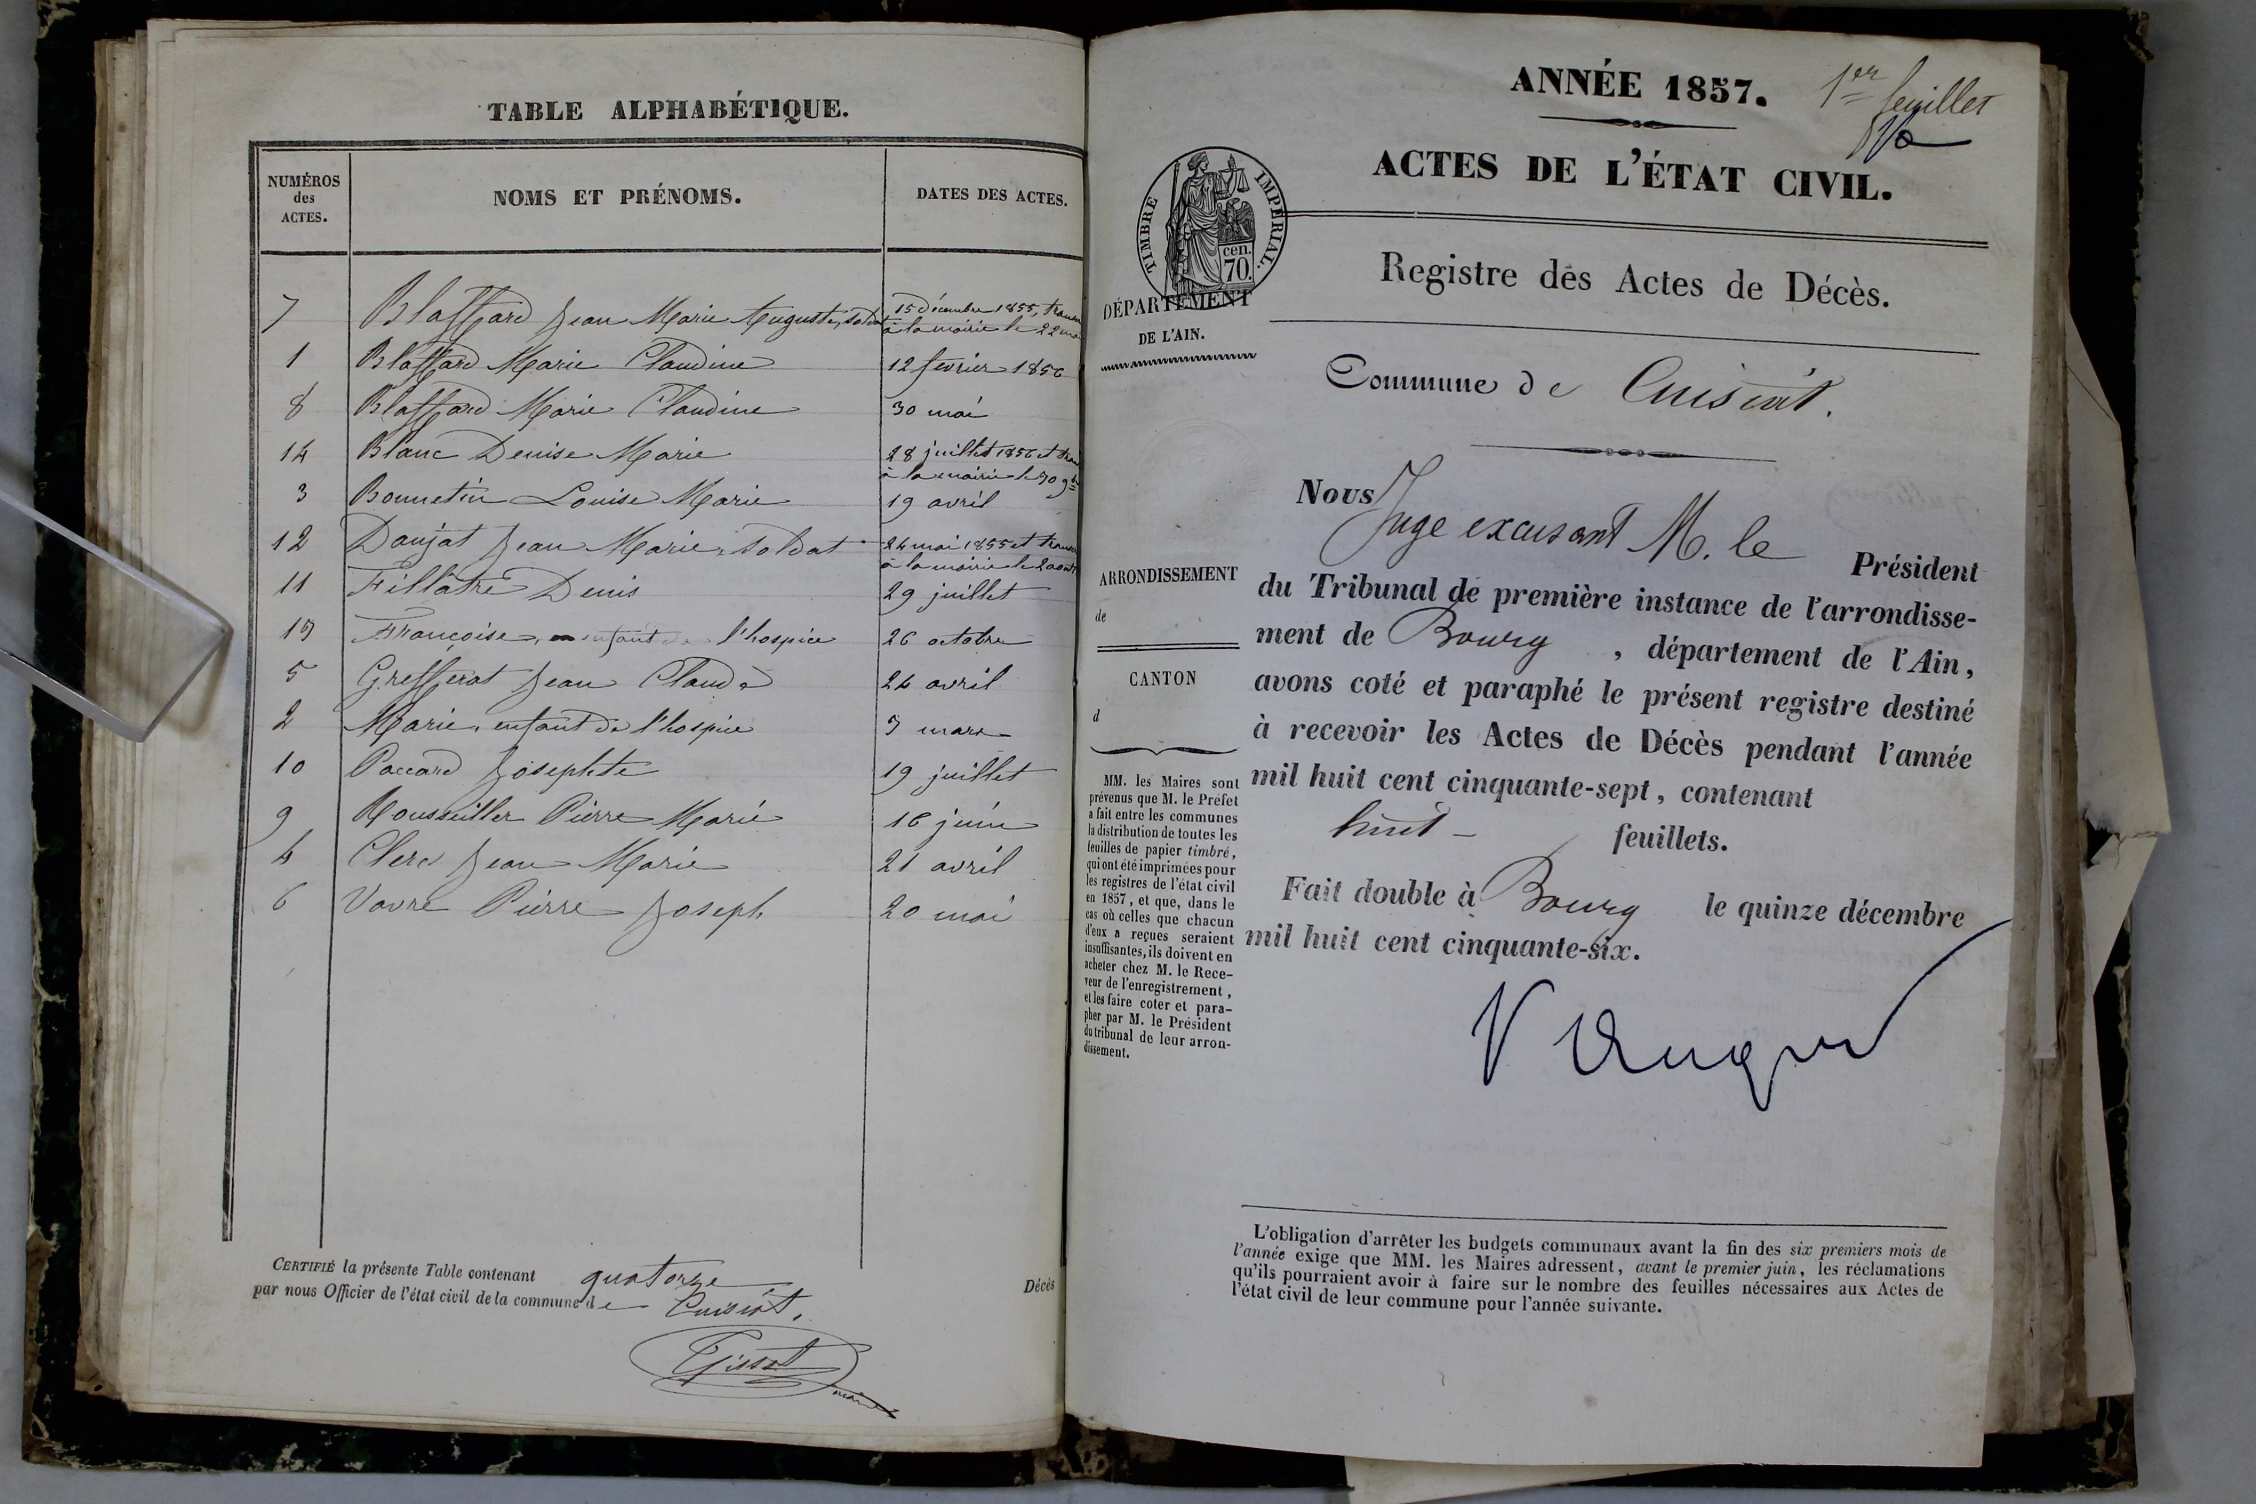 TABLE ALPHABÉTIQUE.
NUMÉROS des ACTES. NOMS ET PRÉNOMS. DATES DES ACTES.
7 Blaffard Jean Marie Auguste, soldat 15 décembre 1855,
à la mairie le 22
1 Blaffard Marie Claudine 12 fevrier 1856
8 Blaffard Marie Claudine 30 mai
14 Blanc Denise Marie 28 juillet 1856 et
à la mairie le 30 9bre
3 Bonnetin Louise Marie 19 avril
12 Daujat Jean Marie, soldat 24 mai 1855 et
à la mairie le 2 aout
11 Fillatre Denis 29 juillet
13 Françoise, enfant de l'hospice 26 octobre
5 Grefferat Jean Claude 24 avril
2 Marie, enfant de l'hospice 3 mars
10 Paccard Josephte 19 juillet
9 Rousseiller Pierre Marie 16 juin
4 Clerc Jean Marie 21 avril
6 Vavre Pierre Joseph 20 mai
CERTIFIÉ la présente Table contenant quatorze Décès
par nous Officier de l'état civil de la commune de Cuisiat.
ANNÉE 1857.
1er feuillet
ACTES DE L'ÉTAT CIVIL.
TIMBRE IMPÉRIAL.
cen.
70.
Registre des Actes de Décès.
DÉPARTEMENT
DE L'AIN.
Commune de Cuisiat.
Nous
Juge excusant M. le Président
du Tribunal de première instance de l'arrondisse-
ment de Bourg, département de l'Ain,
avons coté et paraphé le présent registre destiné
à recevoir les Actes de Décès pendant l'année
mil huit cent cinquante-sept, contenant
huit feuillets.
Fait double à Bourg le quinze décembre
mil huit cent cinquante-six.
ARRONDISSEMENT
de
CANTON
d
MM. les Maires sont
prévenus que M. le Préfet
a fait entre les communes
la distribution de toutes les
feuilles de papier timbré,
qui ont été imprimées pour
les registres de l'état civil
en 1857, et que, dans le
cas où celles que chacun
d'eux a reçues seraient
insuffisantes, ils doivent en
acheter chez M. le Rece-
veur de l'enregistrement,
et les faire coter et para-
pher par M. le Président
du tribunal de leur arron-
dissement.
L'obligation d'arrêter les budgets communaux avant la fin des six premiers mois de
l'année exige que MM. les Maires adressent, avant le premier juin, les réclamations
qu'ils pourraient avoir à faire sur le nombre des feuilles nécessaires aux Actes de
l'état civil de leur commune pour l'année suivante.